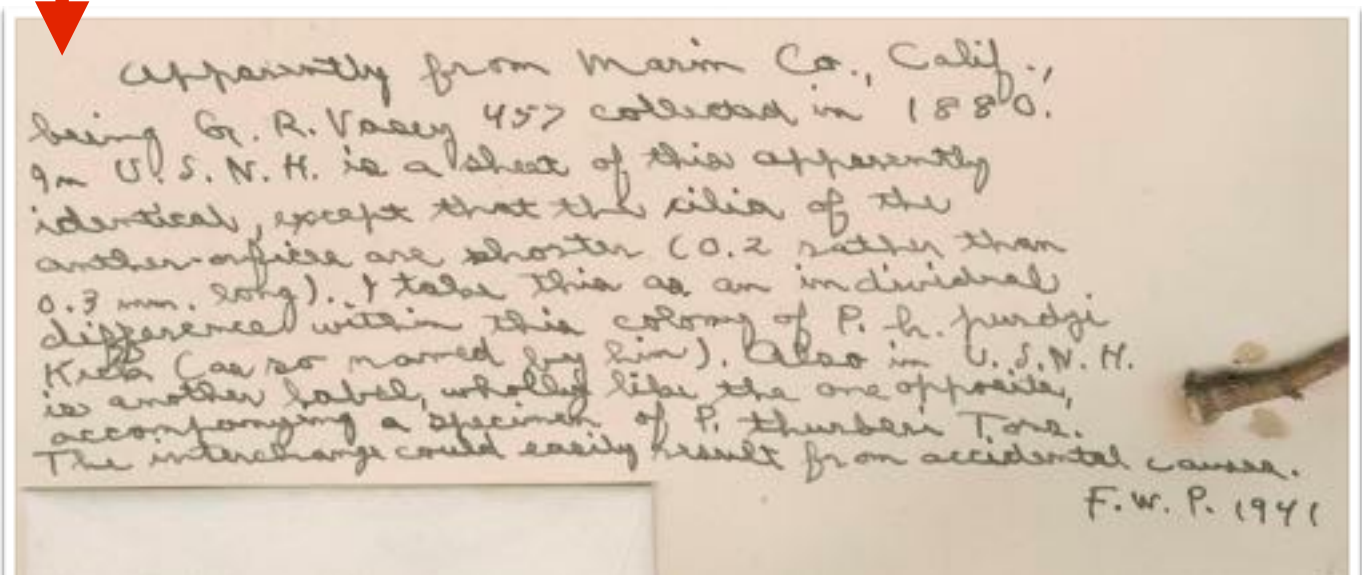 Apparently from Marin Co., Calif.,
being G. R. Vasey 457 collected in 1880.
In U.S.N.H. is a sheet of this apparently
identical, except that the cilia of the
anther-orifice are shorter (0.2 rather than
0.3 mm. long). I take this as an individual
difference within this colony of P. h. purdyi
Keck (as so named by him). Also in U.S.N.H.
is another label, wholly like the one opposite,
accompanying a specimen of P. thurberi Torr.
The interchange could easily result from accidental causes.
F.W.P. 1941